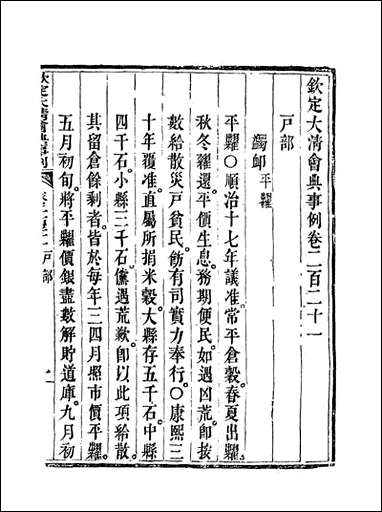 欽定大清會典事例卷二百二十一
戶部
蠲卹平糶
平糶〇順治十七年議准常平倉穀春夏出糶
秋冬糴還平價生息務期便民如遇凶荒卽按
數給散災戶貧民飭有司實力奉行〇康熙三
十年覆准直屬所捐米穀大縣存五千石中縣
四千石小縣三千石儻遇荒歉卽以此項給散
其留倉餘剩者皆於每年三四月照市價平糶
五月初旬將平糶價銀盡數解貯道庫九月初
欽定大清會典事例
戶部